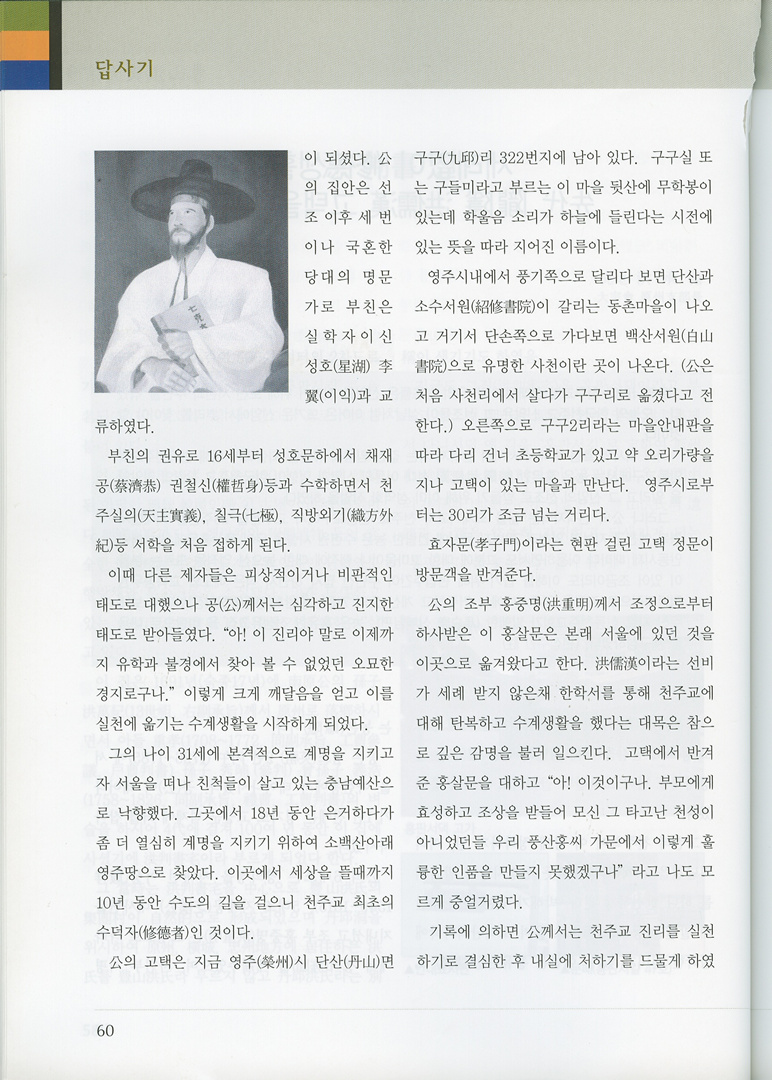 답사기
七克
이 되셨다. 公
의 집안은 선
조 이후 세 번
이나 국혼한
당대의 명문
가로 부친은
실학자이신
성호(星湖) 李
翼(이익)과 교
류하였다.
부친의 권유로 16세부터 성호문하에서 채재
공(蔡濟恭) 권철신(權哲身)등과 수학하면서 천
주실의(天主實義), 칠극(七極), 직방외기(織方外
紀)등 서학을 처음 접하게 된다.
이때 다른 제자들은 피상적이거나 비판적인
태도로 대했으나 공(公)께서는 심각하고 진지한
태도로 받아들였다. “아! 이 진리야 말로 이제까
지 유학과 불경에서 찾아 볼 수 없었던 오묘한
경지로구나.” 이렇게 크게 깨달음을 얻고 이를
실천에 옮기는 수계생활을 시작하게 되었다.
그의 나이 31세에 본격적으로 계명을 지키고
자 서울을 떠나 친척들이 살고 있는 충남예산으
로 낙향했다. 그곳에서 18년 동안 은거하다가
좀 더 열심히 계명을 지키기 위하여 소백산아래
영주땅으로 찾았다. 이곳에서 세상을 뜰때까지
10년 동안 수도의 길을 걸으니 천주교 최초의
수덕자(修德者)인 것이다.
公의 고택은 지금 영주(榮州)시 단산(丹山)면
구구(九邱)리 322번지에 남아 있다. 구구실 또
는 구들미라고 부르는 이 마을 뒷산에 무학봉이
있는데 학울음 소리가 하늘에 들린다는 시전에
있는 뜻을 따라 지어진 이름이다.
영주시내에서 풍기쪽으로 달리다 보면 단산과
소수서원(紹修書院)이 갈리는 동촌마을이 나오
고 거기서 단손쪽으로 가다보면 백산서원(白山
書院)으로 유명한 사천이란 곳이 나온다. (公은
처음 사천리에서 살다가 구구리로 옮겼다고 전
한다.) 오른쪽으로 구구2리라는 마을안내판을
따라 다리 건너 초등학교가 있고 약 오리가량을
지나 고택이 있는 마을과 만난다. 영주시로부
터는 30리가 조금 넘는 거리다.
효자문(孝子門)이라는 현판 걸린 고택 정문이
방문객을 반겨준다.
公의 조부 홍중명(洪重明)께서 조정으로부터
하사받은 이 홍살문은 본래 서울에 있던 것을
이곳으로 옮겨왔다고 한다. 洪儒漢이라는 선비
가 세례 받지 않은채 한학서를 통해 천주교에
대해 탄복하고 수계생활을 했다는 대목은 참으
로 깊은 감명을 불러 일으킨다. 고택에서 반겨
준 홍살문을 대하고 “아! 이것이구나. 부모에게
효성하고 조상을 받들어 모신 그 타고난 천성이
아니었던들 우리 풍산홍씨 가문에서 이렇게 훌
륭한 인품을 만들지 못했겠구나” 라고 나도 모
르게 중얼거렸다.
기록에 의하면 公께서는 천주교 진리를 실천
하기로 결심한 후 내실에 처하기를 드물게 하였
60